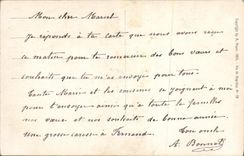 Mon cher Marcel
Je réponds à ta carte que nous avons reçu
ce matin pour te remercier des bons vœux et
souhaits que tu m'as envoyés pour tous
Tante Marie et les cousines se joignent à moi
pour t'envoyer ainsi qu'à toute la famille
nos vœux et nos souhaits de bonne année.
Une grosse caresse à Fernand.
Ton oncle
A. Bonnot